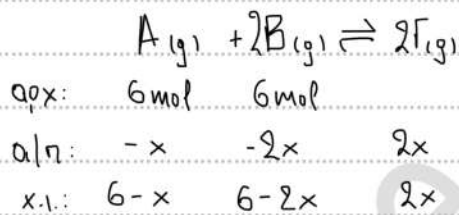 A(g) + 2B(g) ⇌ 2Γ(g)
αρχ: 6mol 6mol
α/π: -x -2x 2x
χ.ι.: 6-x 6-2x 2x